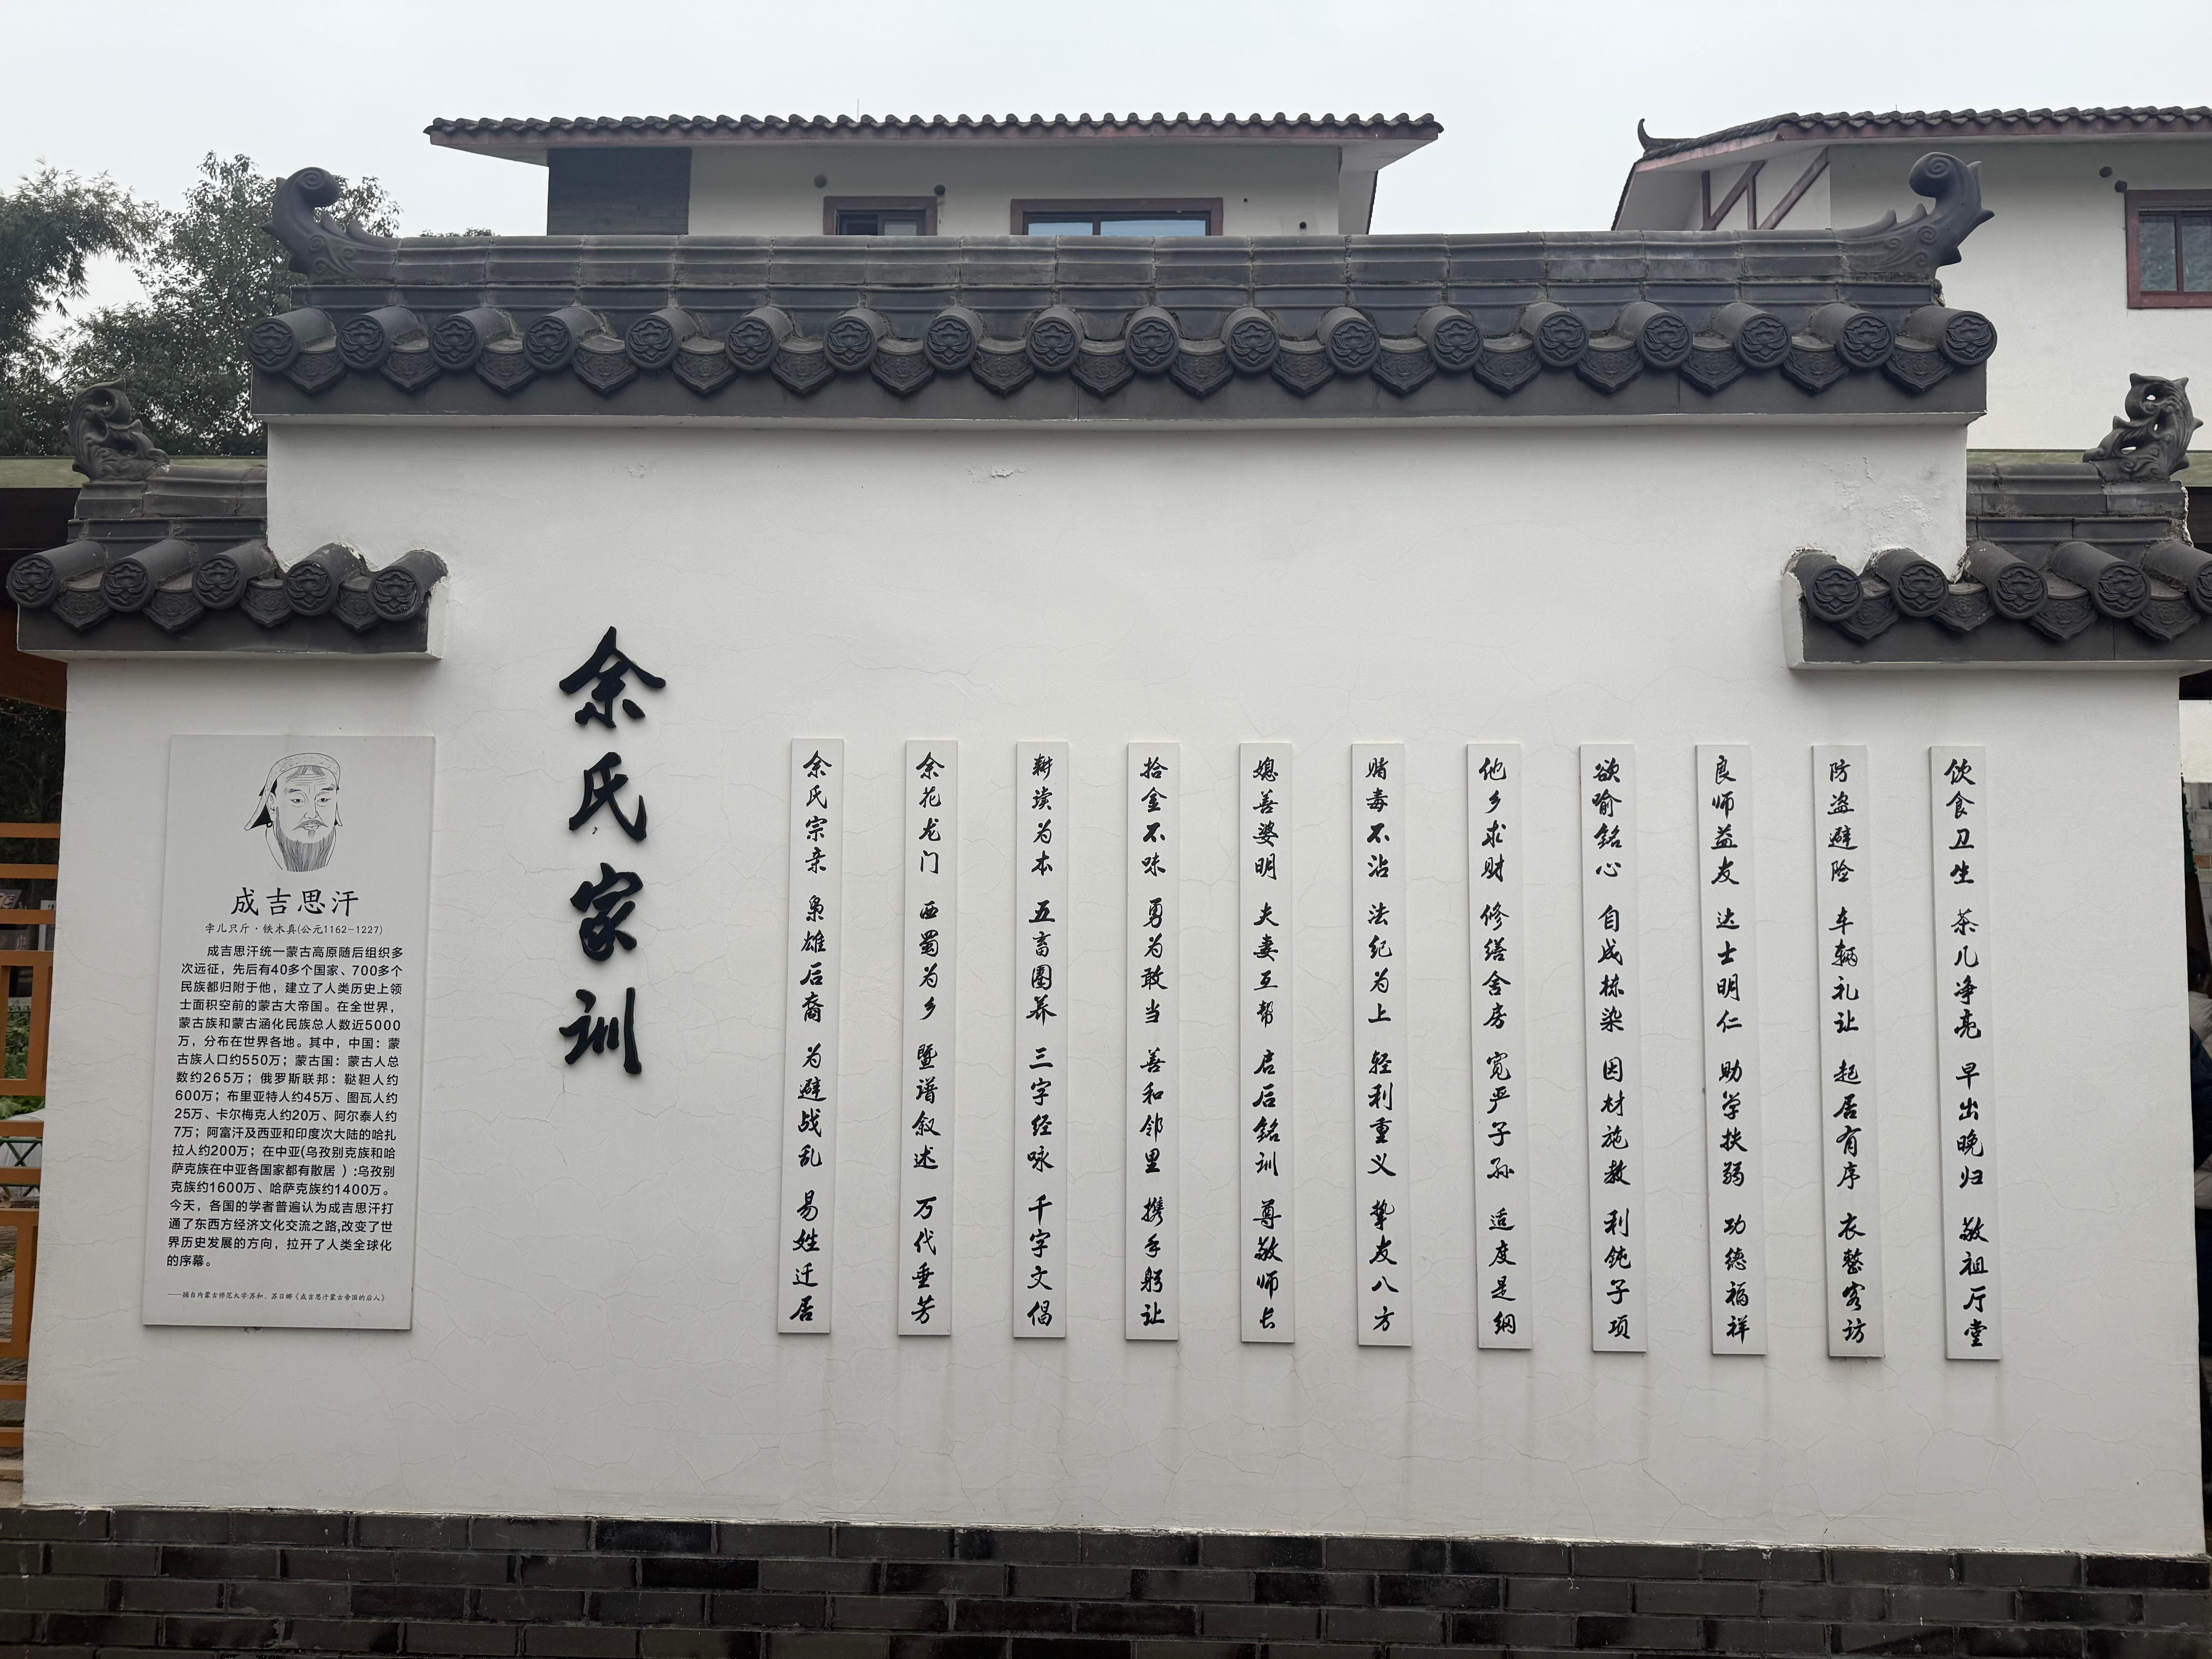 成吉思汗
孛儿只斤·铁木真(公元1162-1227)
成吉思汗统一蒙古高原随后组织多
次远征，先后有40多个国家、700多个
民族都归附于他，建立了人类历史上领
土面积空前的蒙古大帝国。在全世界，
蒙古族和蒙古涵化民族总人数近5000
万，分布在世界各地。其中，中国：蒙
古族人口约550万；蒙古国：蒙古人总
数约265万；俄罗斯联邦：鞑靼人约
600万；布里亚特人约45万、图瓦人约
25万、卡尔梅克人约20万、阿尔泰人约
7万；阿富汗及西亚和印度次大陆的哈扎
拉人约200万；在中亚(乌孜别克族和哈
萨克族在中亚各国家都有散居 ）:乌孜别
克族约1600万、哈萨克族约1400万。
今天，各国的学者普遍认为成吉思汗打
通了东西方经济文化交流之路,改变了世
界历史发展的方向，拉开了人类全球化
的序幕。
——摘自内蒙古师范大学苏和、苏日娜《成吉思汗蒙古帝国的后人》
余氏家训
余氏宗亲 枭雄后裔 为避战乱 易姓迁居
余花龙门 西蜀为乡 暨谱叙述 万代垂芳
耕读为本 五畜圈养 三字经咏 千字文倡
拾金不昧 勇为敢当 善和邻里 携手躬让
媳善婆明 夫妻互帮 启后铭训 尊敬师长
赌毒不沾 法纪为上 轻利重义 挚友八方
他乡求财 修缮舍房 宽严子孙 适度是纲
欲喻铭心 自成栋染 因材施教 利钝子项
良师益友 达士明仁 助学扶弱 功德福祥
防盗避险 车辆礼让 起居有序 衣整客访
饮食卫生 茶几净亮 早出晚归 敬祖厅堂